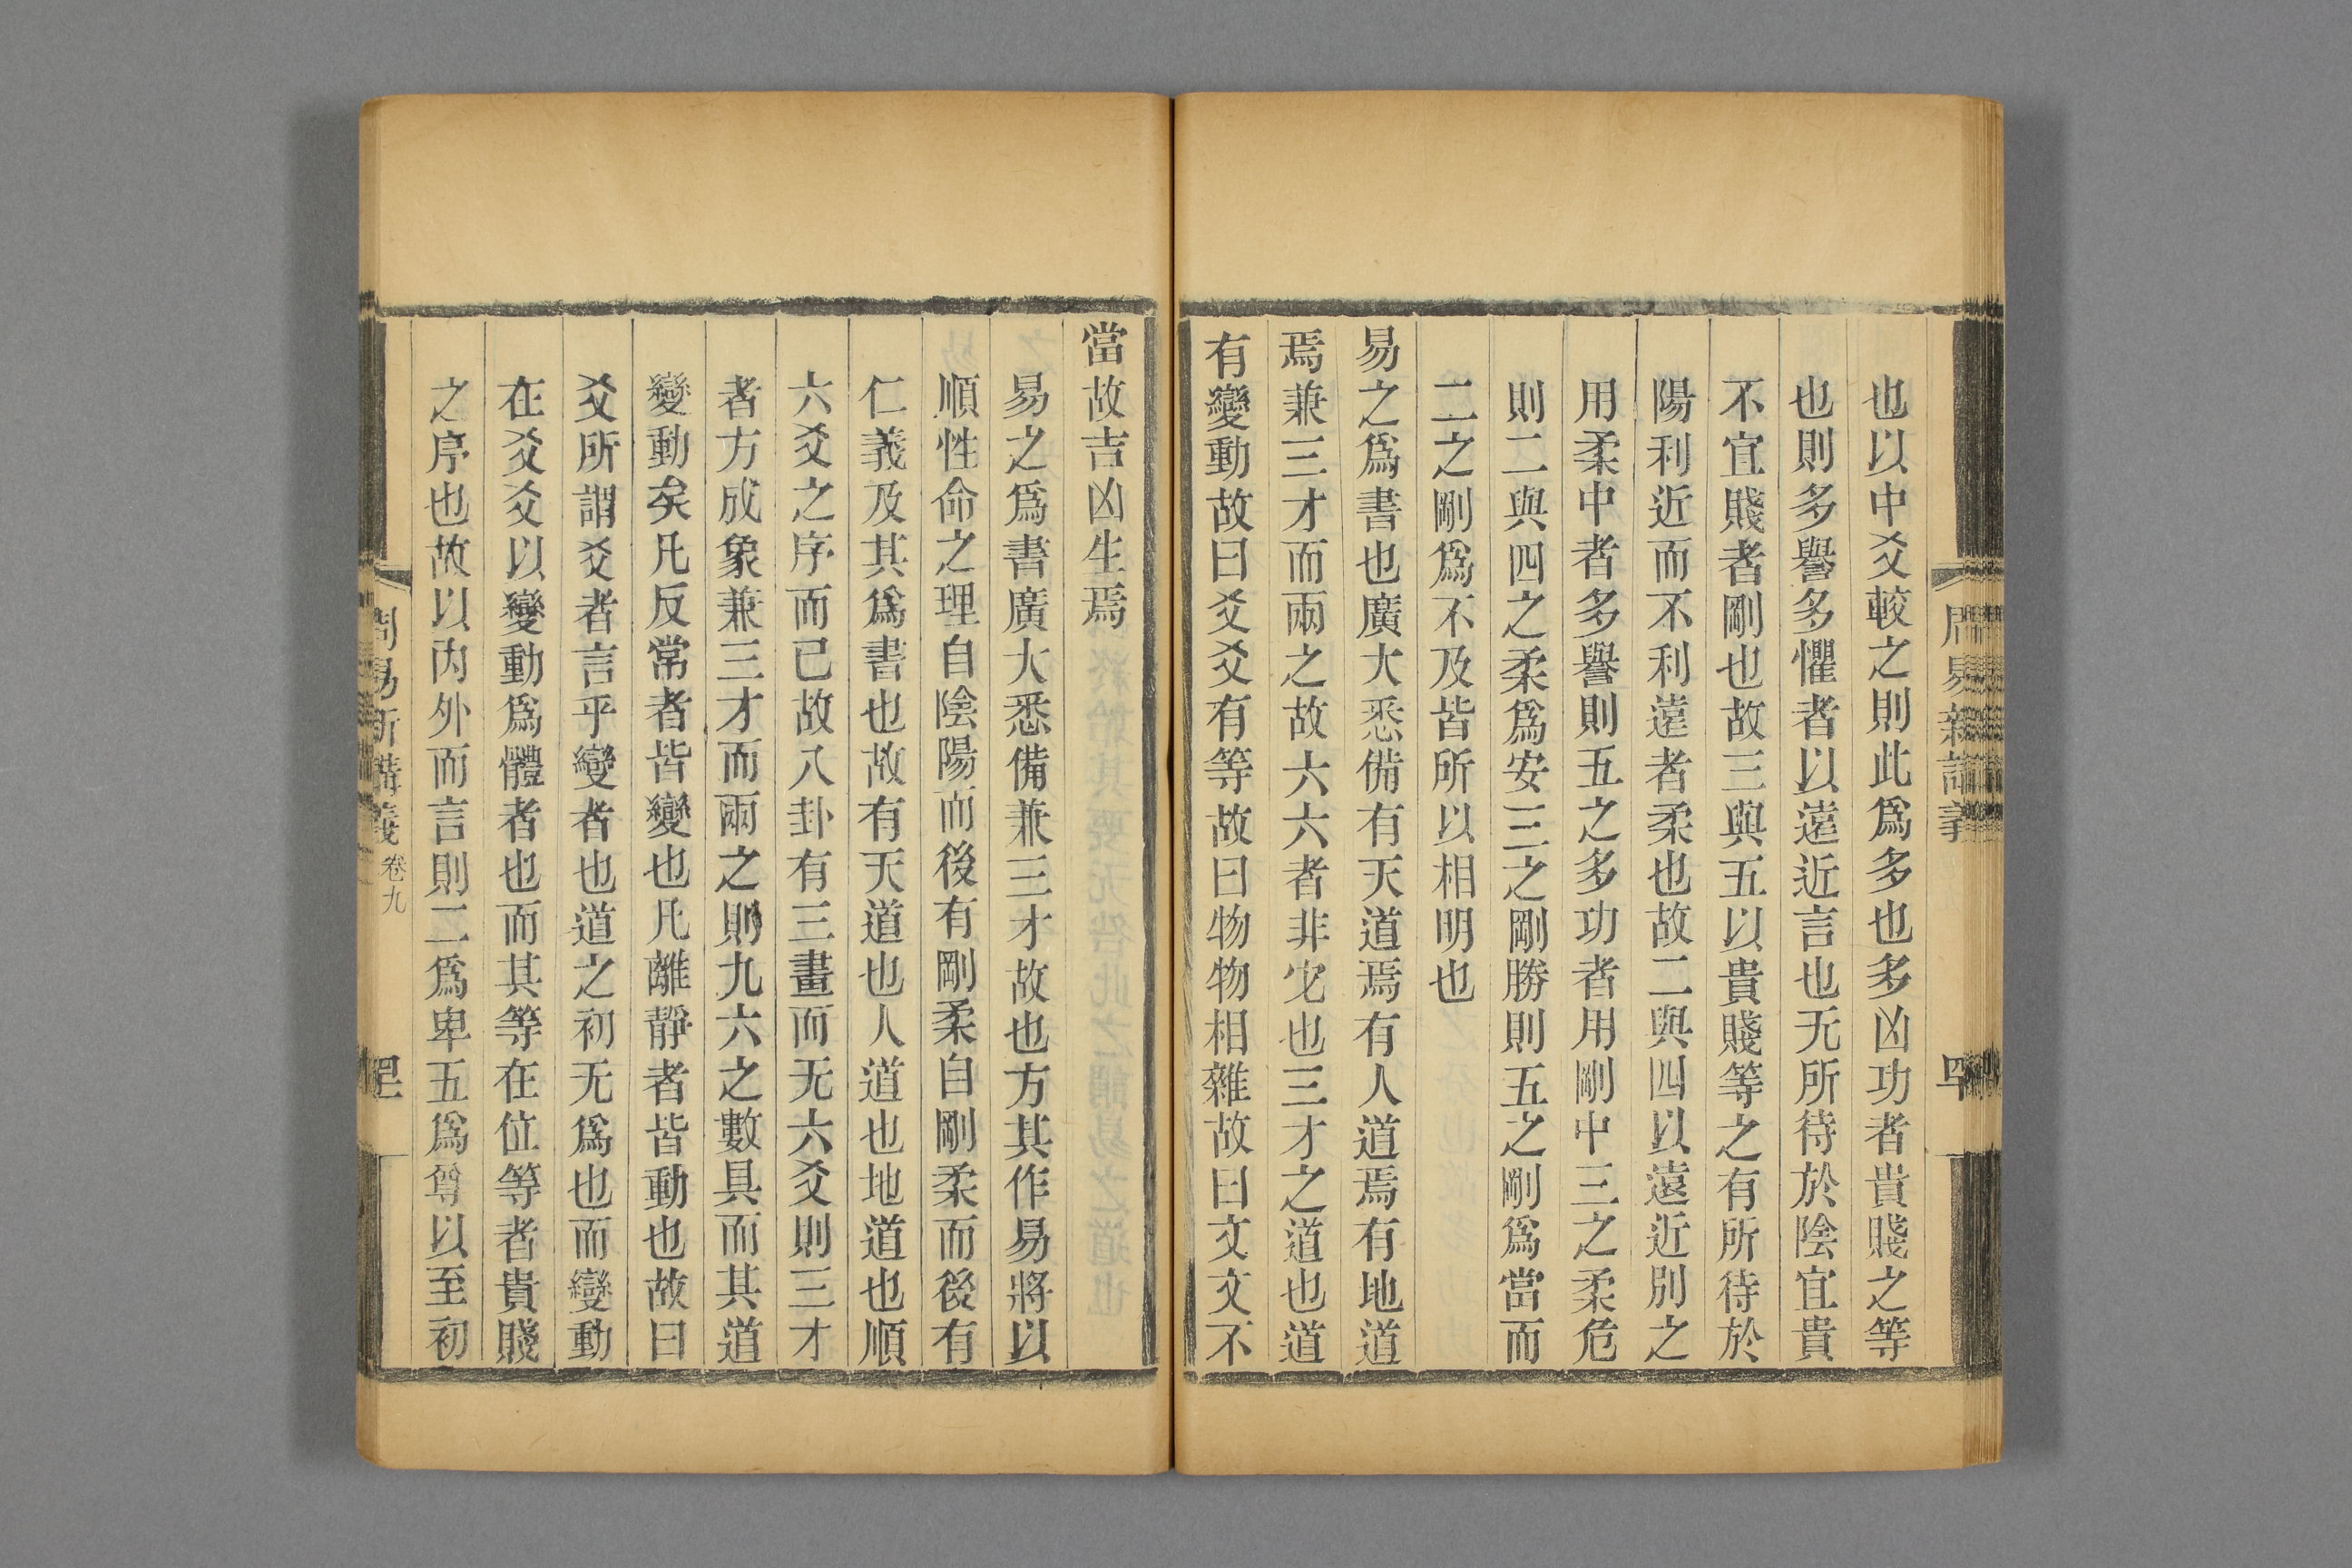 也以中爻較之則此爲多也多凶功者貴賤之等
也則多譽多懼者以遠近言也无所待於陰宜貴
不宜賤者剛也故三與五以貴賤等之有所待於
陽利近而不利遠者柔也故二與四以遠近別之
用柔中者多譽則五之多功者用剛中三之柔危
則二與四之柔爲安三之剛勝則五之剛爲當而
二之剛爲不及皆所以相明也
易之爲書也廣大悉備有天道焉有人道焉有地道
焉兼三才而兩之故六六者非它也三才之道也道
有變動故曰爻爻有等故曰物物相雜故曰文文不
當故吉凶生焉
易之爲書廣大悉備兼三才故也方其作易將以
順性命之理自陰陽而後有剛柔自剛柔而後有
仁義及其爲書也故有天道也人道也地道也順
六爻之序而已故八卦有三畫而无六爻則三才
者方成象兼三才而兩之則九六之數具而其道
變動矣凡反常者皆變也凡離靜者皆動也故曰
爻所謂爻者言乎變者也道之初无爲也而變動
在爻爻以變動爲體者也而其等在位等者貴賤
之序也故以內外而言則二爲卑五爲尊以至初
周易新講義 卷九